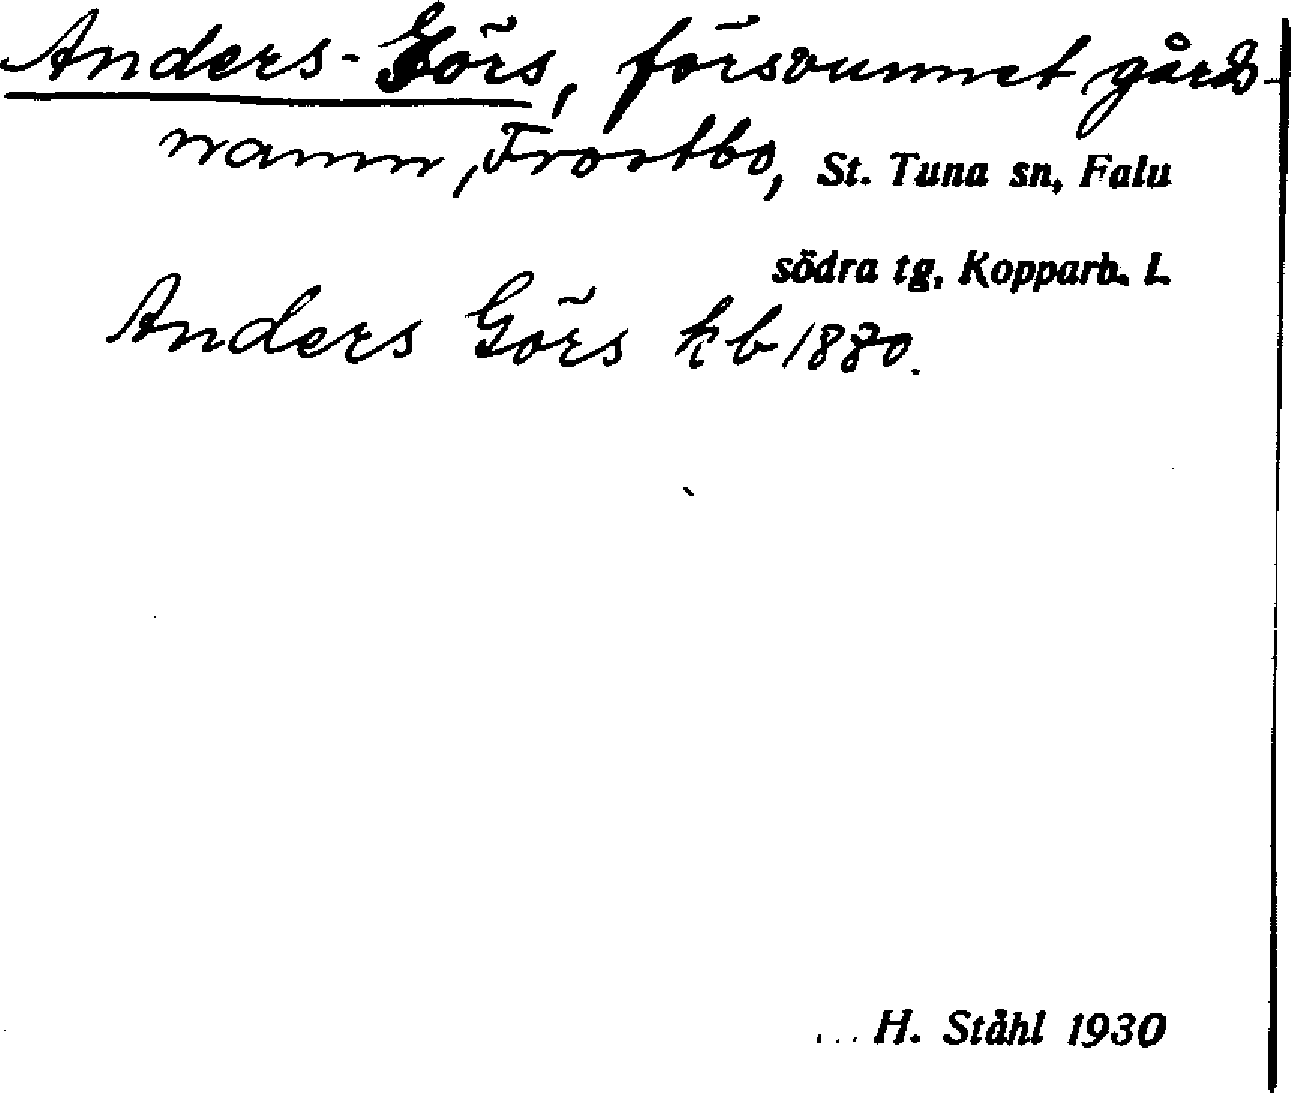 Anders-Görs, försvunnet gårds-
namn, Frostbo, St. Tuna sn, Falu
södra tg, Kopparb. l.
Anders Görs kb 1880.
H. Ståhl 1930